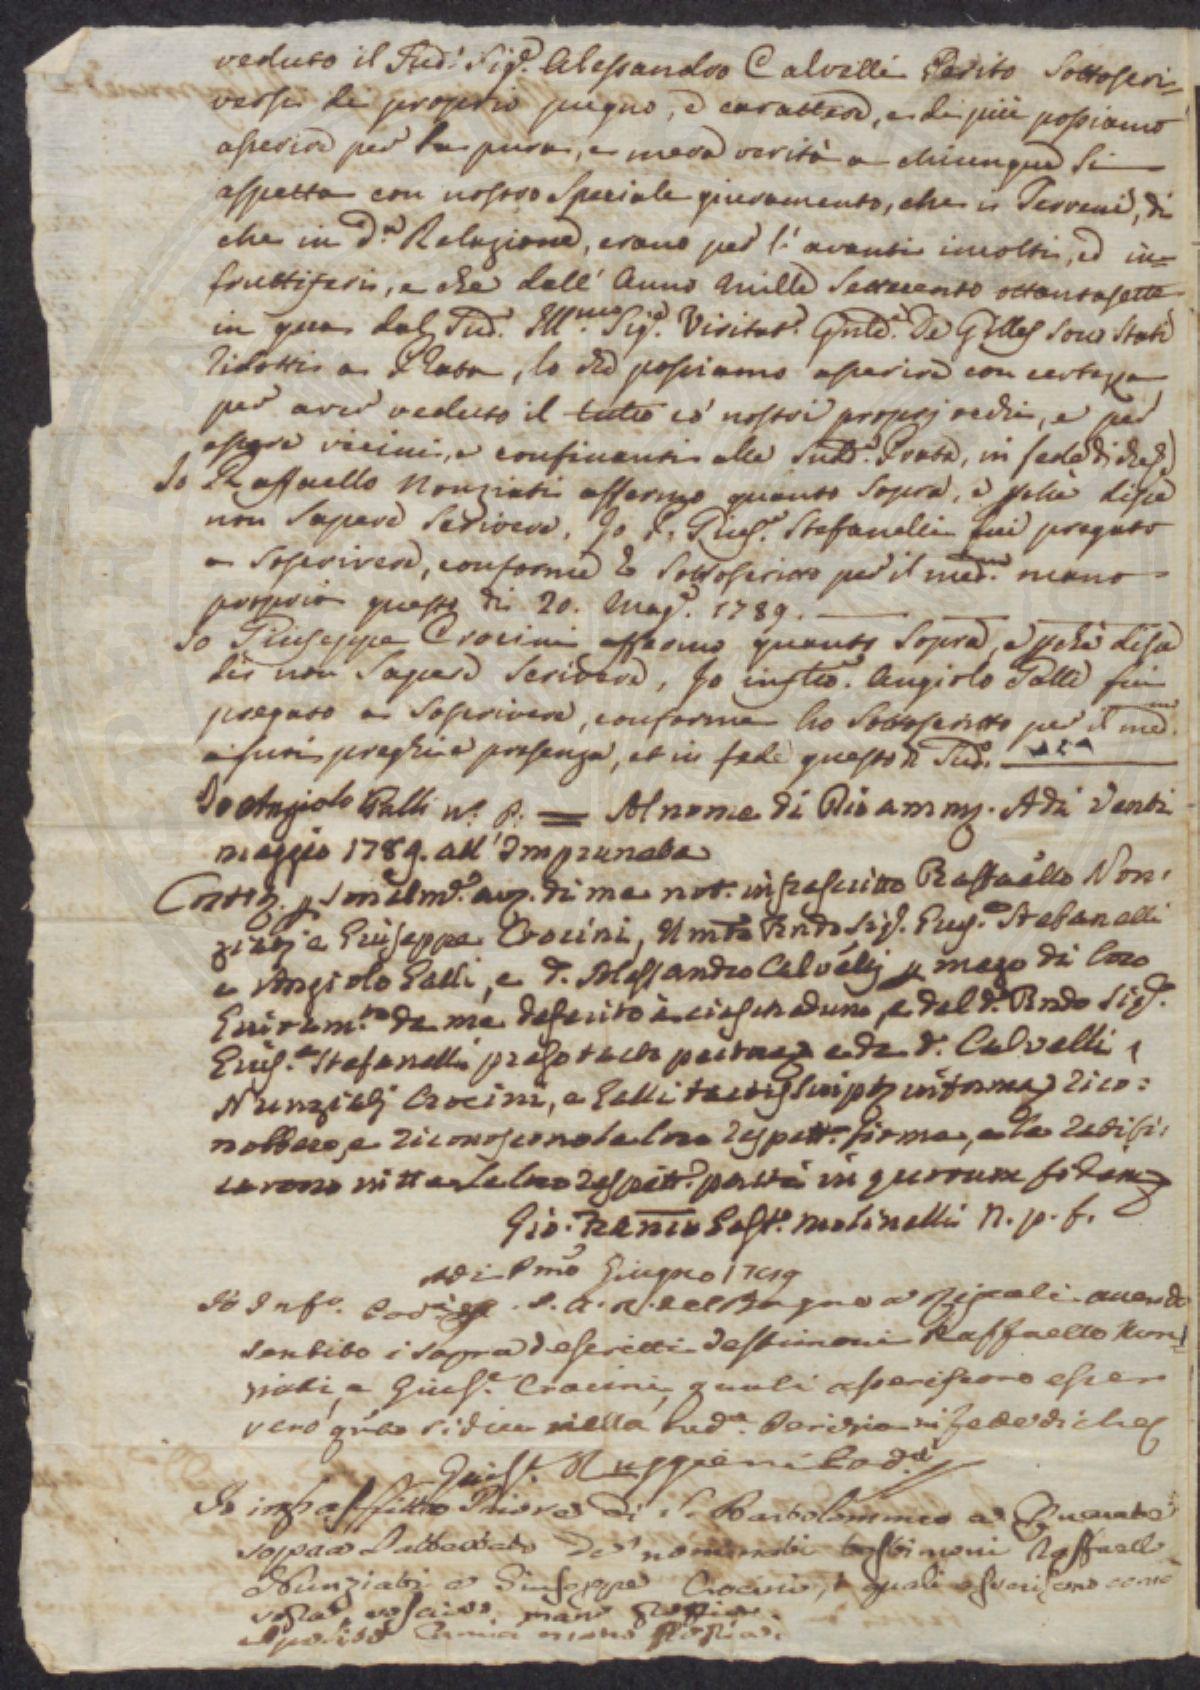 veduto il Sud.º Sig.e Alessandro Calvelli Perito Sottoscri=
versi di proprio pugno, e carattere, e di più possiamo
asserire per la pura, e mera verità a chiunque si
aspetta con nostro Speciale giuramento, che i Terreni, di
che in d.a Relazione, erano per l'avanti incolti, ed in=
fruttiferi, e che dall'Anno Mille Settecento ottantasette
in qua dal Sud.º Ill.mo Sig.e Visitat.e De Gilles sono stati
ridotti a Prata, lo che possiamo asserire con certezza
per aver veduto il tutto co' nostri proprj occhi, e per
essere vicini, e confinanti alle Sudd.e Prata, in fede di che
Io Raffaello Nunziati affermo quanto sopra, e perchè disse
non Sapere Scrivere, Io P. Gius.e Stefanelli fui pregato
a Soscrivere, conforme ho Sottoscritto per il med.mo mano
propria questo dì 20. Mag.º 1789.
Io Giuseppe Crocini affermo quanto Sopra, e perchè disse
di non Sapere Scrivere, Io Angiolo Galli fui
pregato a Soscrivere, conforme ho Sottoscritto per il med.mo
a suoi preghi e presenza, et in fede questo dì Sud.º
Io Angiolo Galli = Al nome di Dio amm. Adi Venti
maggio 1789. all'Impruneta
di me not. infrascritto Raffaello Non=
ziati e Giuseppe Crocini, Sig.e Gius.e Stefanelli
e Angiolo Galli, e d. Alessandro Calvelli p mezo di loro
Giuram.to da me deferito a ciascheduno, e dal d. Rndo Sig.e
Gius.e Stefanelli preso tacto pectore e da d. Calvelli,
Nunziati Crocini, e Galli tactis rico=
nobbero, e riconoscono le loro respett.e firme, e le ratifi=
carono in tutte le loro respett.e parti in quorum fidem
Gio. Molinelli N. p. f.
Adi Pmo Giugno 1789
Io Inf.o S. A. R. del Bagno a Ripoli avendo
sentito i sopra descritti testimoni Raffaello Nun=
ziati, e Gius.e Crocini, quali asseriscono esser
vero q.to si dice nella Sud.a Perizia in fede di che
Gius.e Ruggieri
Io infra.tto Priore di S. Bartolommeo a Quarate
sopra l'attestato de' nominati testimoni Raffaello
Nunziati e Giuseppe Crocini, i quali asseriscono come
sopra mano propria
mano propria.